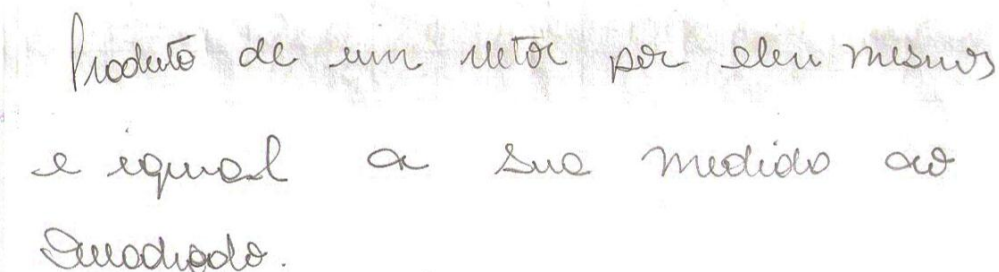 Produto de um vetor por eleu mesmos
e igual a sua medida ao
Quadrado.